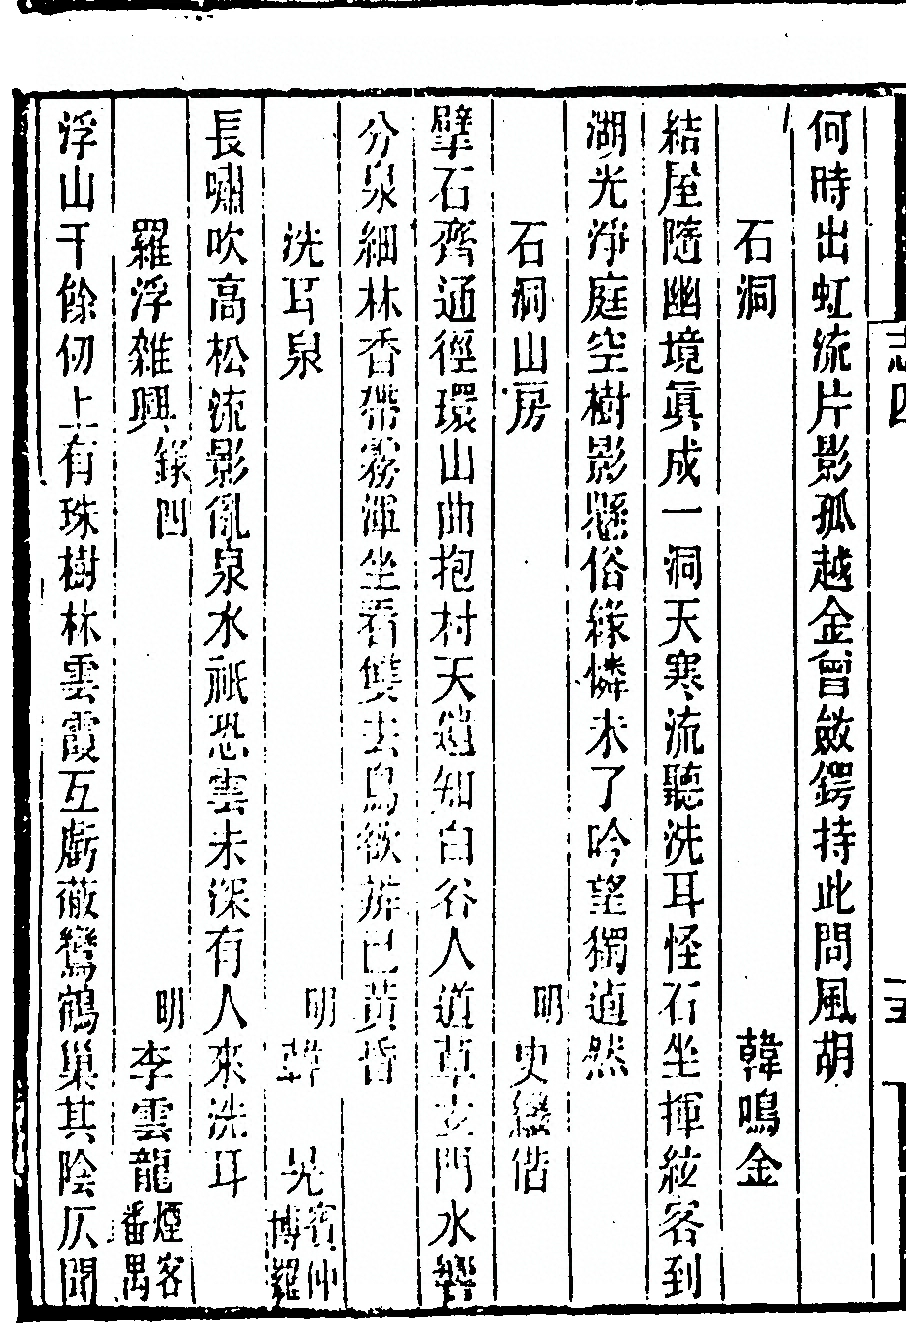 志四
何時出虹流片影孤越金曾斂鍔持此問風胡
石洞 韓鳴金
結屋隨幽境眞成一洞天寒流聽洗耳怪石坐揮絃客到
湖光淨庭空樹影懸俗緣憐未了吟望獨逌然
石洞山房 明史繼偕
擘石齊通徑環山曲抱村天遺知白谷人道草玄門水響
分泉細林香帶霧渾坐看雙去鳥欲辨已黃昏
洗耳泉 明韓晃賓仲博羅
長嘯吹高松流影亂泉水祇恐雲未深有人來洗耳
羅浮雜興錄四 明李雲龍煙客番禺
浮山千餘仞上有珠樹林雲霞互虧蔽鸞鶴巢其陰仄聞